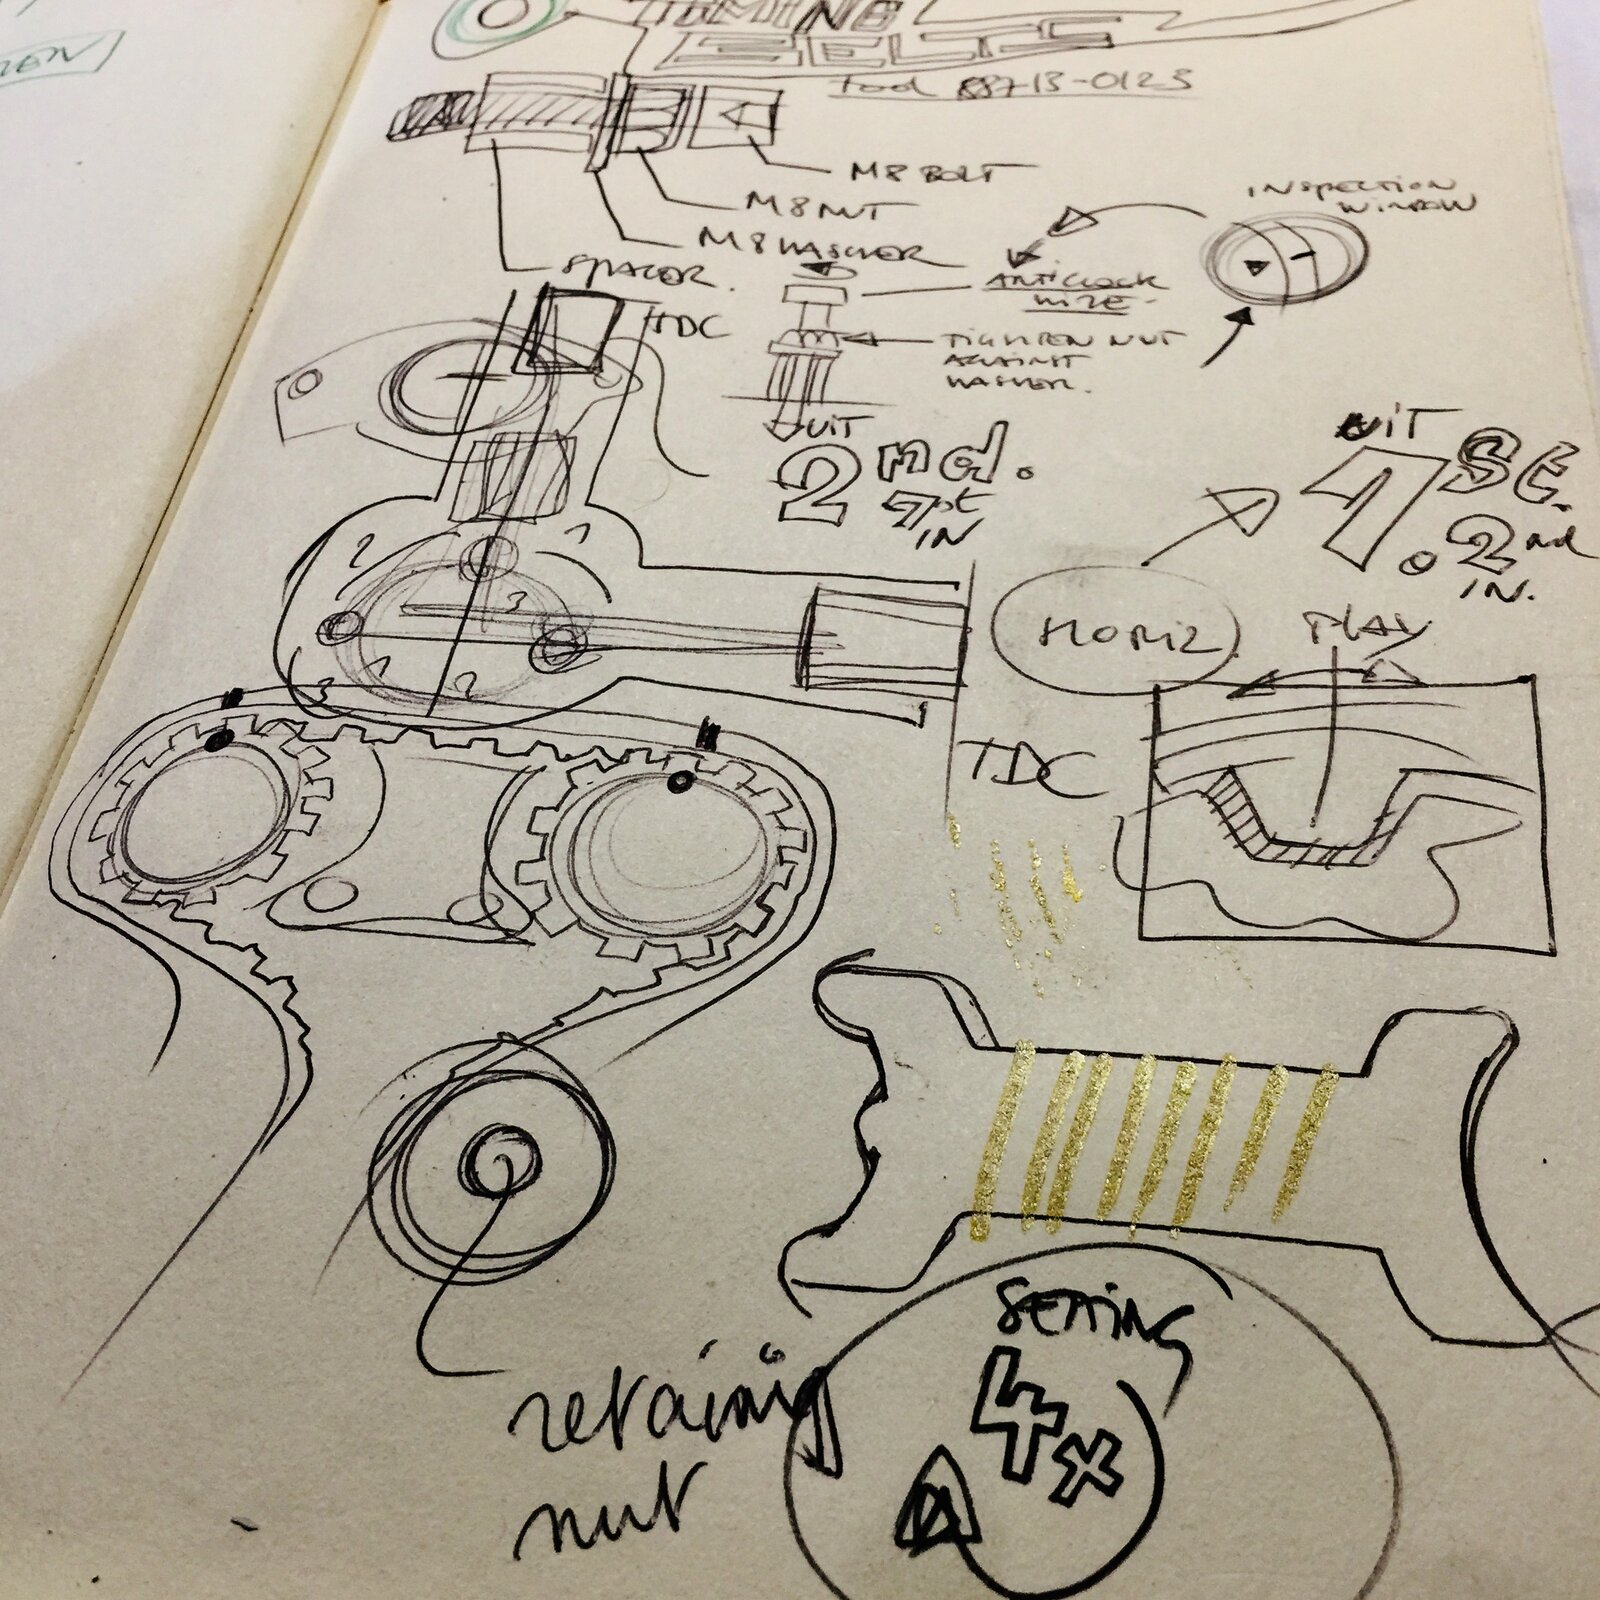 TIMING
BELTS
Tool 88713-0123
M8 BOLT
M8 NUT
M8 WASHER
SPACER.
INSPECTION
WINDOW
ANTICLOCK
WIZE
TIGHTEN NUT
AGAINST
WASHER.
TDC
UIT
2nd.
1st
IN
UIT
1st.
2nd
IN.
2
1
3
HORIZ
PLAY
TDC
retaining
nut
SETTING
4x